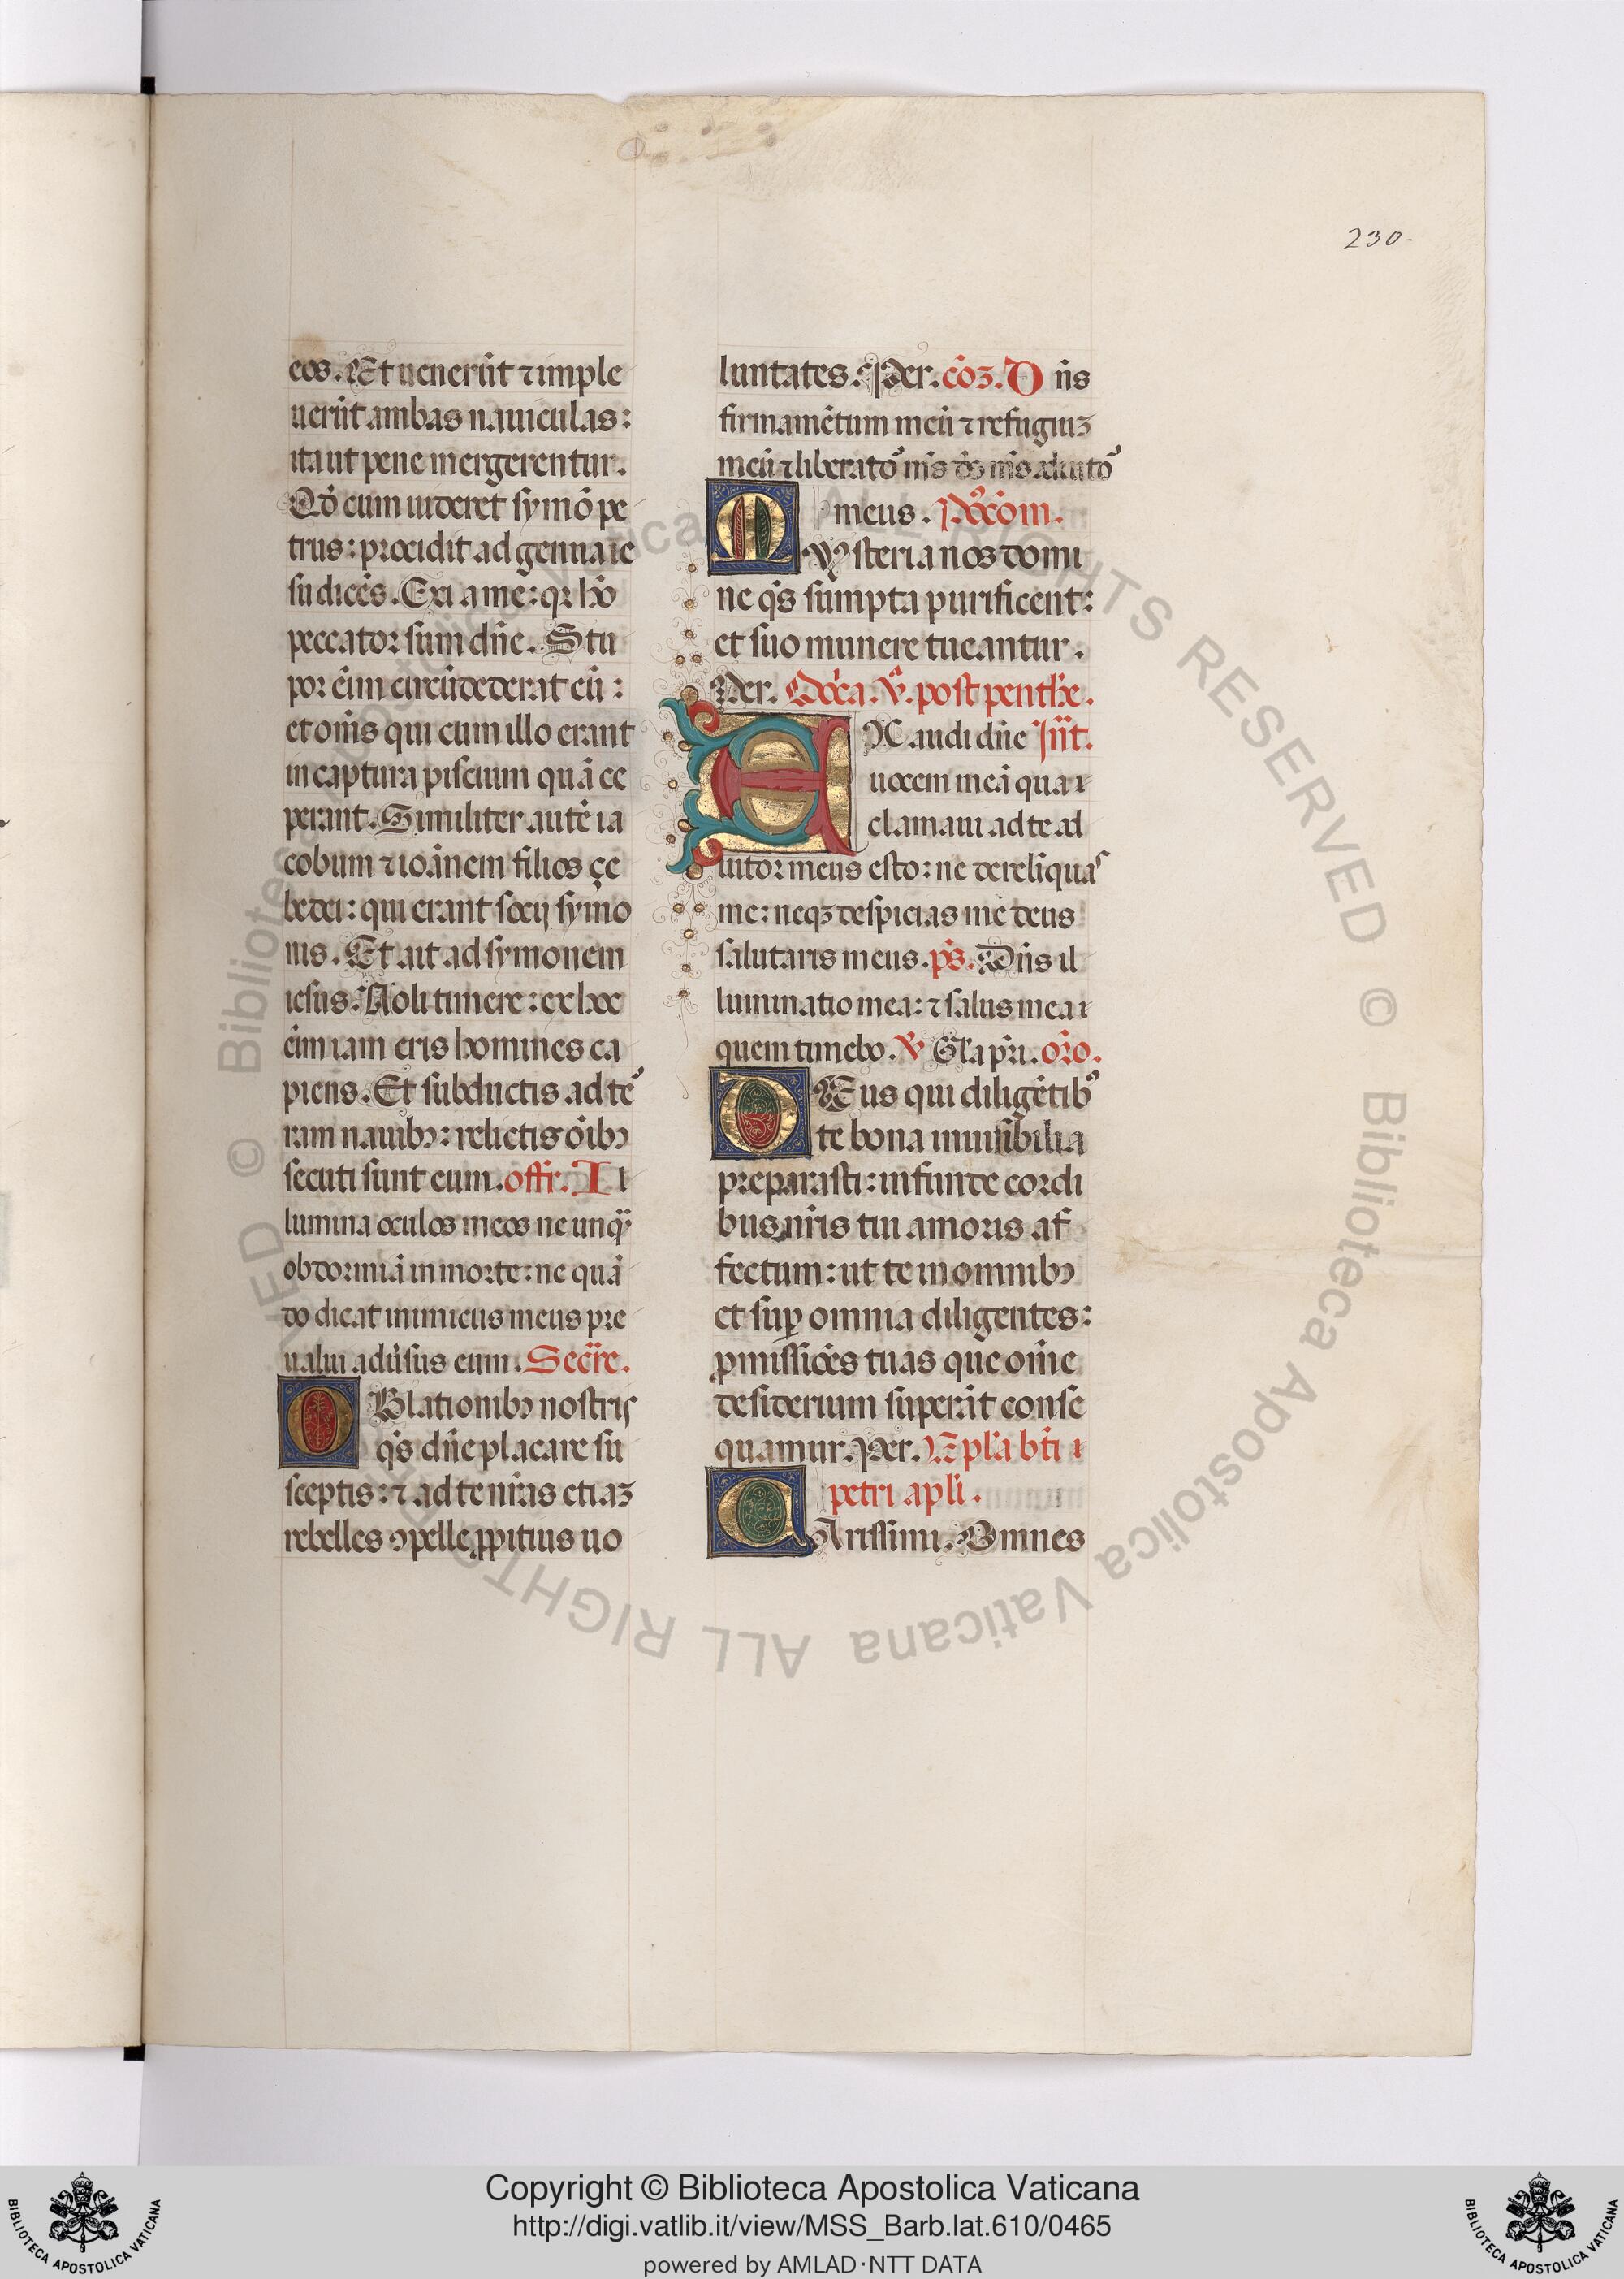 230-
eos. Et uenerūt ⁊ imple
uerūt ambas nauiculas:
ita ut pene mergerentur.
Qd̄ cum uideret symō pe
trus: procidit ad genua ie
su dicēs. Exi a me: qꝛ hō
peccator sum dn̄e. Stu
por ēim circūdederat eū:
et om̄s qui cum illo erant
in captura piscium quā ce
perant. Similiter autē ia
cobum ⁊ ioānem filios çe
bedei: qui erant socij symo
nis. Et ait ad symonem
iesus. Noli timere: ex hoc
ēim iam eris homines ca
piens. Et subductis ad te᷒
ram nauibꝫ: relictis ōibꝫ
secuti sunt eum. offr̄. Il
lumina oculos meos ne unqꝫ
obdormiā in morte: ne quā
do dicat inimicus meus pre
ualui adūsus eum. Secr̄e.
OBlationibꝫ nostris
qs̄ dn̄e placare su
sceptis: ⁊ ad te nr̄as etiaꝫ
rebelles ꝯpelle ꝓpitius uo
luntates. Per. cōꝫ. D n̄s
firmamētum meū ⁊ refugiuꝫ
meū ⁊ liberato᷒ ms̄ ds̄ ms̄ adiuto᷒
meus. Po᷒cōm.
MYsteria nos domi
ne qs̄ sumpta purificent:
et suo munere tueantur.
Per. Dōca. v̄. post penthe.
EXaudi dn̄e Int̄.
uocem meā qua ı
clamaui ad te ad
iutor meus esto: ne derelīquas
me: neqꝫ despicias me deus
salutaris meus. ps̄. Dn̄s il
luminatio mea: ⁊ salus mea ı
quem timebo. V Gl̄a pr̄i. or̄o.
DEus qui diligētib᷒
te bona inuisibilia
preparasti: infunde cordi
bus nr̄is tui amoris af
fectum: ut te in omnibꝫ
et suꝑ omnia diligentes:
ꝓmissiōes tuas que om̄e
desiderium superāt conse
quamur. Per. Epl̄a bt̄i ı
petri apl̄i.
CArissimi. Omnes
Copyright © Biblioteca Apostolica Vaticana
http://digi.vatlib.it/view/MSS_Barb.lat.610/0465
powered by AMLAD·NTT DATA
BIBLIOTECA APOSTOLICA VATICANA
BIBLIOTECA APOSTOLICA VATICANA
© Biblioteca Apostolica Vaticana ALL RIGHTS RESERVED © Biblioteca Apostolica Vaticana ALL RIGHTS RESERVED